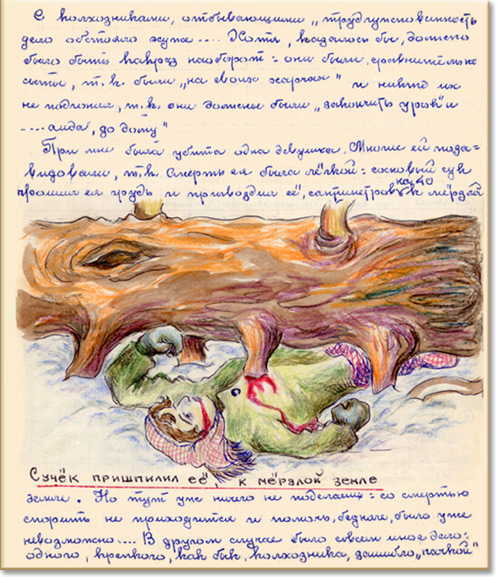 С колхозниками, отбывающими „трудгужповинность"
дело обстояло хуже.... Хотя, казалось бы, должно
было быть как раз наоборот: они были сравнительно
сыты, т.к. были „на своих харчах" и никто их
не подгонял, т.к. они должны были „закончить урок и
.... айда, до дому"
При мне была убита одна девушка. Многие ей поза=
видовали, т.к. смерть ея была лёгкой: сосновый сук
прошил ея грудь и пригвоздил её, сантиметров на 40 к мёрзлой
Сучёк пришпилил её, к мёрзлой земле
земле. Но тут уже ничего не поделаешь: со смертью
спорить не приходится и помочь, бедняге, было уже
невозможно.... В другом случае было совсем иное дело:
одного, крепкого, как бык, колхозника, зашибло „пачкой"